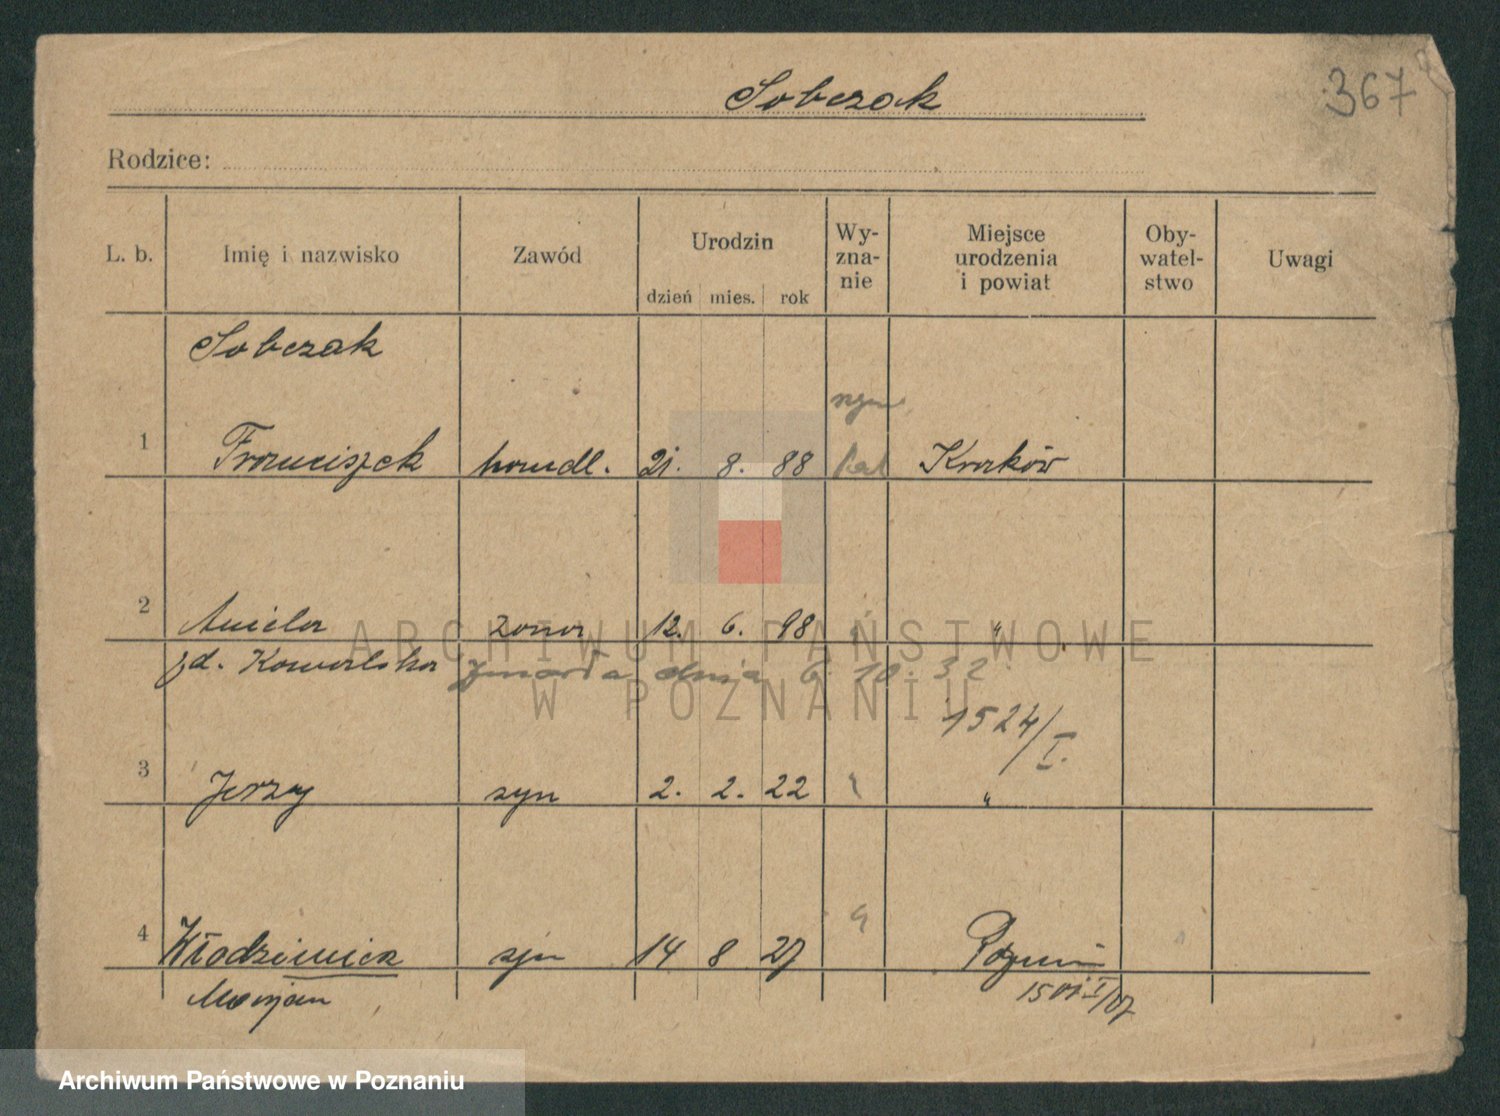 Sobczak
367
Rodzice:
L. b. Imię i nazwisko Zawód Urodzin dzień mies. rok Wy-zna-nie Miejsce urodzenia i powiat Oby-watel-stwo Uwagi
Sobczak
rzym
1 Franciszek handl. 21. 8. 88 kat Kraków
2 Aniela żona 12. 6. 98 "
zd. Kowalska zmarła dnia 6 10. 32
ARCHIWUM PAŃSTWOWE
W POZNANIU
1524/I.
3 Jerzy syn 2. 2. 22 " "
4 Włodzimierz syn 14 8 27 " Poznań
Marjan
Archiwum Państwowe w Poznaniu